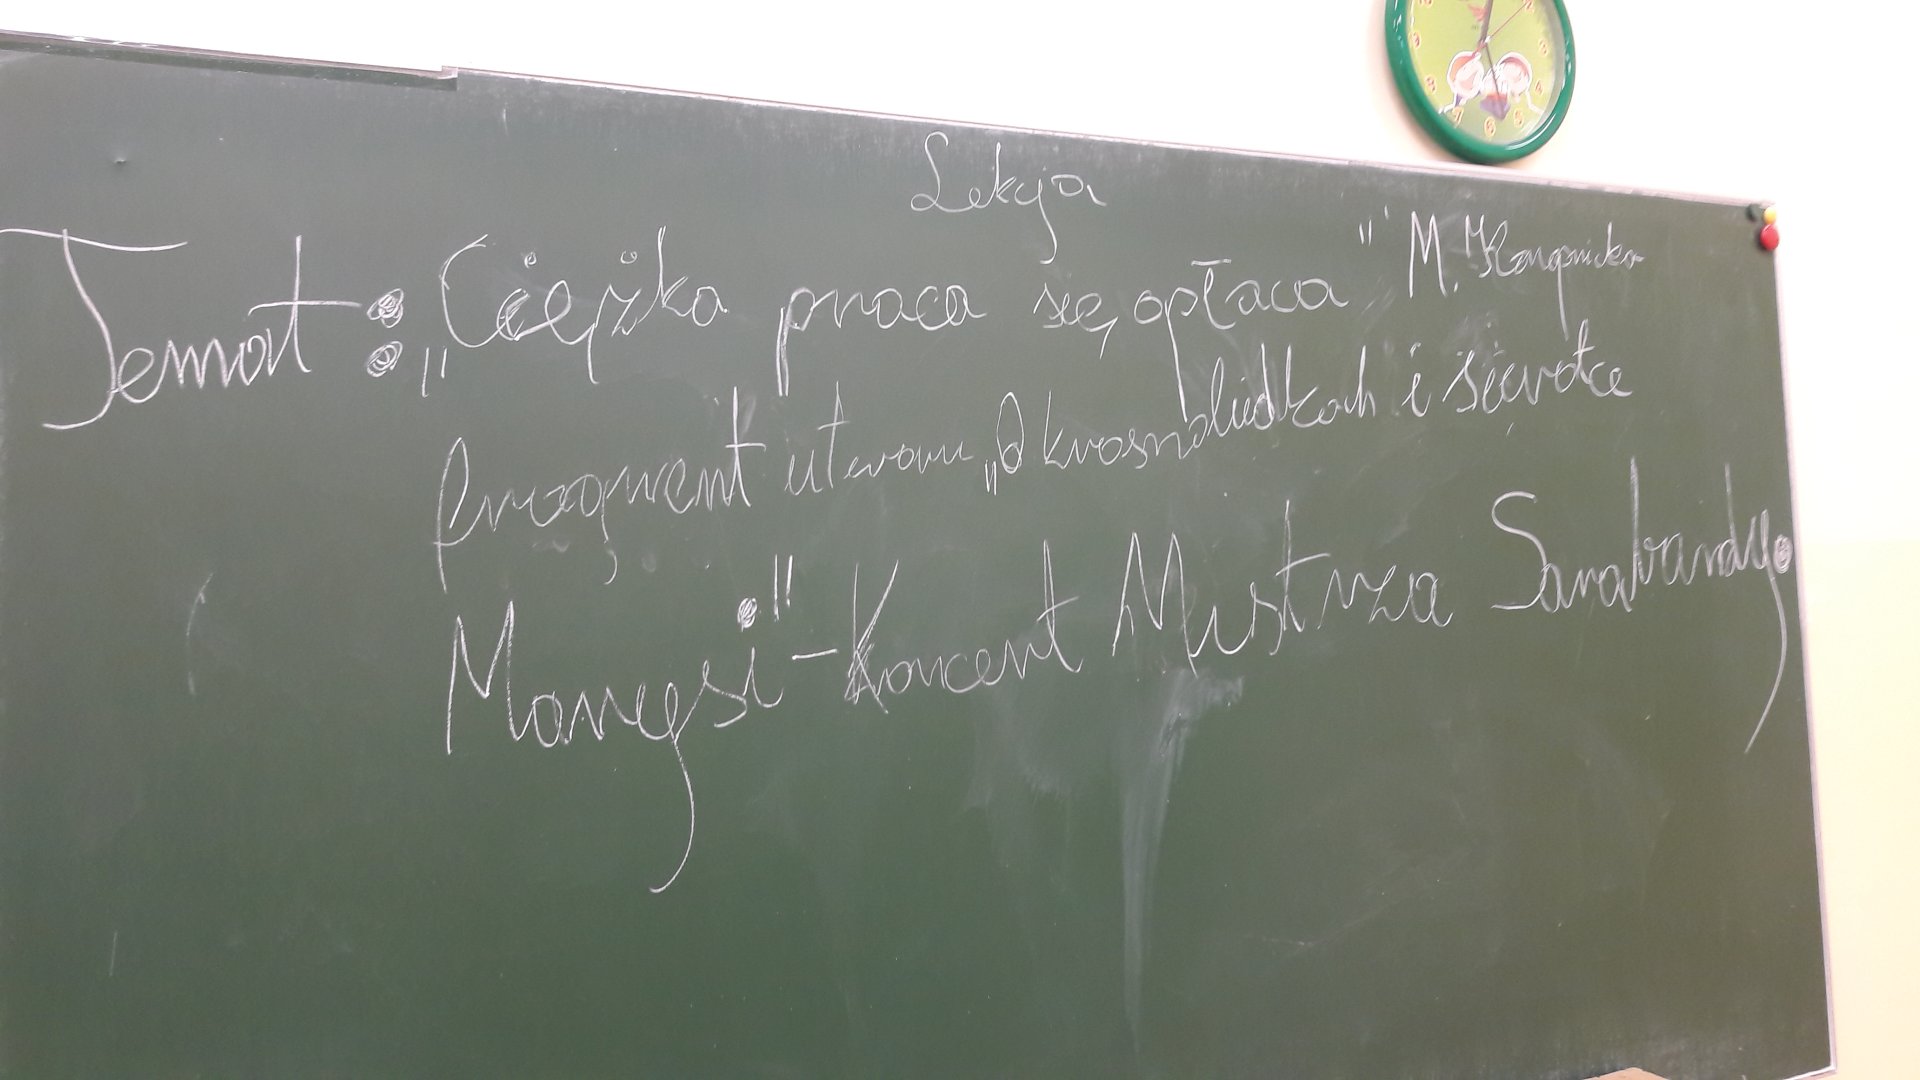 Lekcja
Temat: „Ciężka praca się opłaca" M. Konopnicka
fragment utworu „O krasnoludkach i sierotce
Marysi" - Koncert Mistrza Sarabandy.